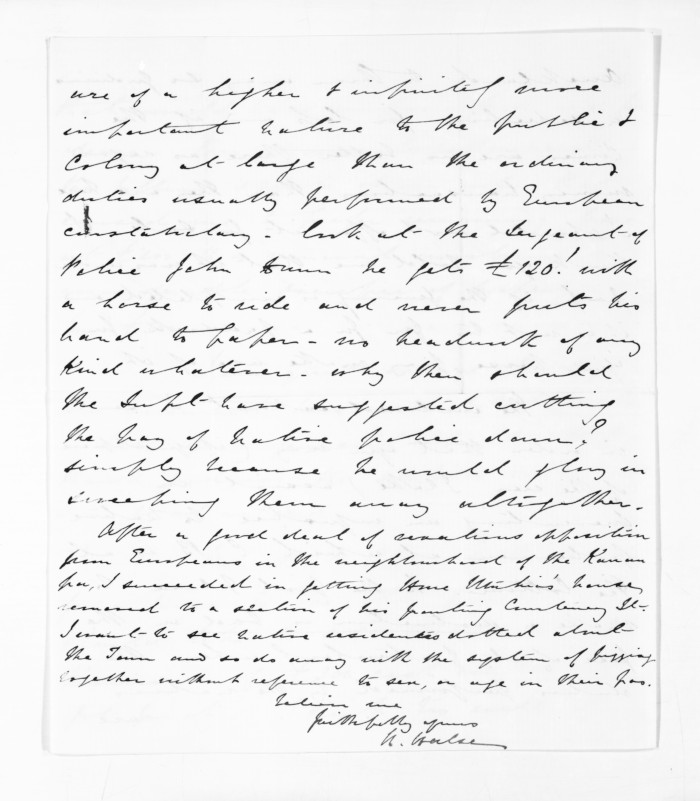 are of a higher & infinitely more
important nature to the public &
Colony at large than the ordinary
duties usually performed by European
constabulary - look at the Sergeant of
Police John Dunn he gets £120! with
a horse to ride and never puts his
hand to paper - no headwork of any
kind whatever - why then should
the Supt have suggested cutting
the pay of Native police down?
simply because he would glory in
sweeping them away altogether.
After a good deal of vexatious opposition
from Europeans in the neighbourhood of the
pa, I succeeded in getting Hone house
removed to a section of his fronting Courtenay St -
I want to see native residences dotted about
the Town and so do away with the system of pigging
together without reference to sex, or age in their pas.
Believe me
faithfully yours
H. Halse